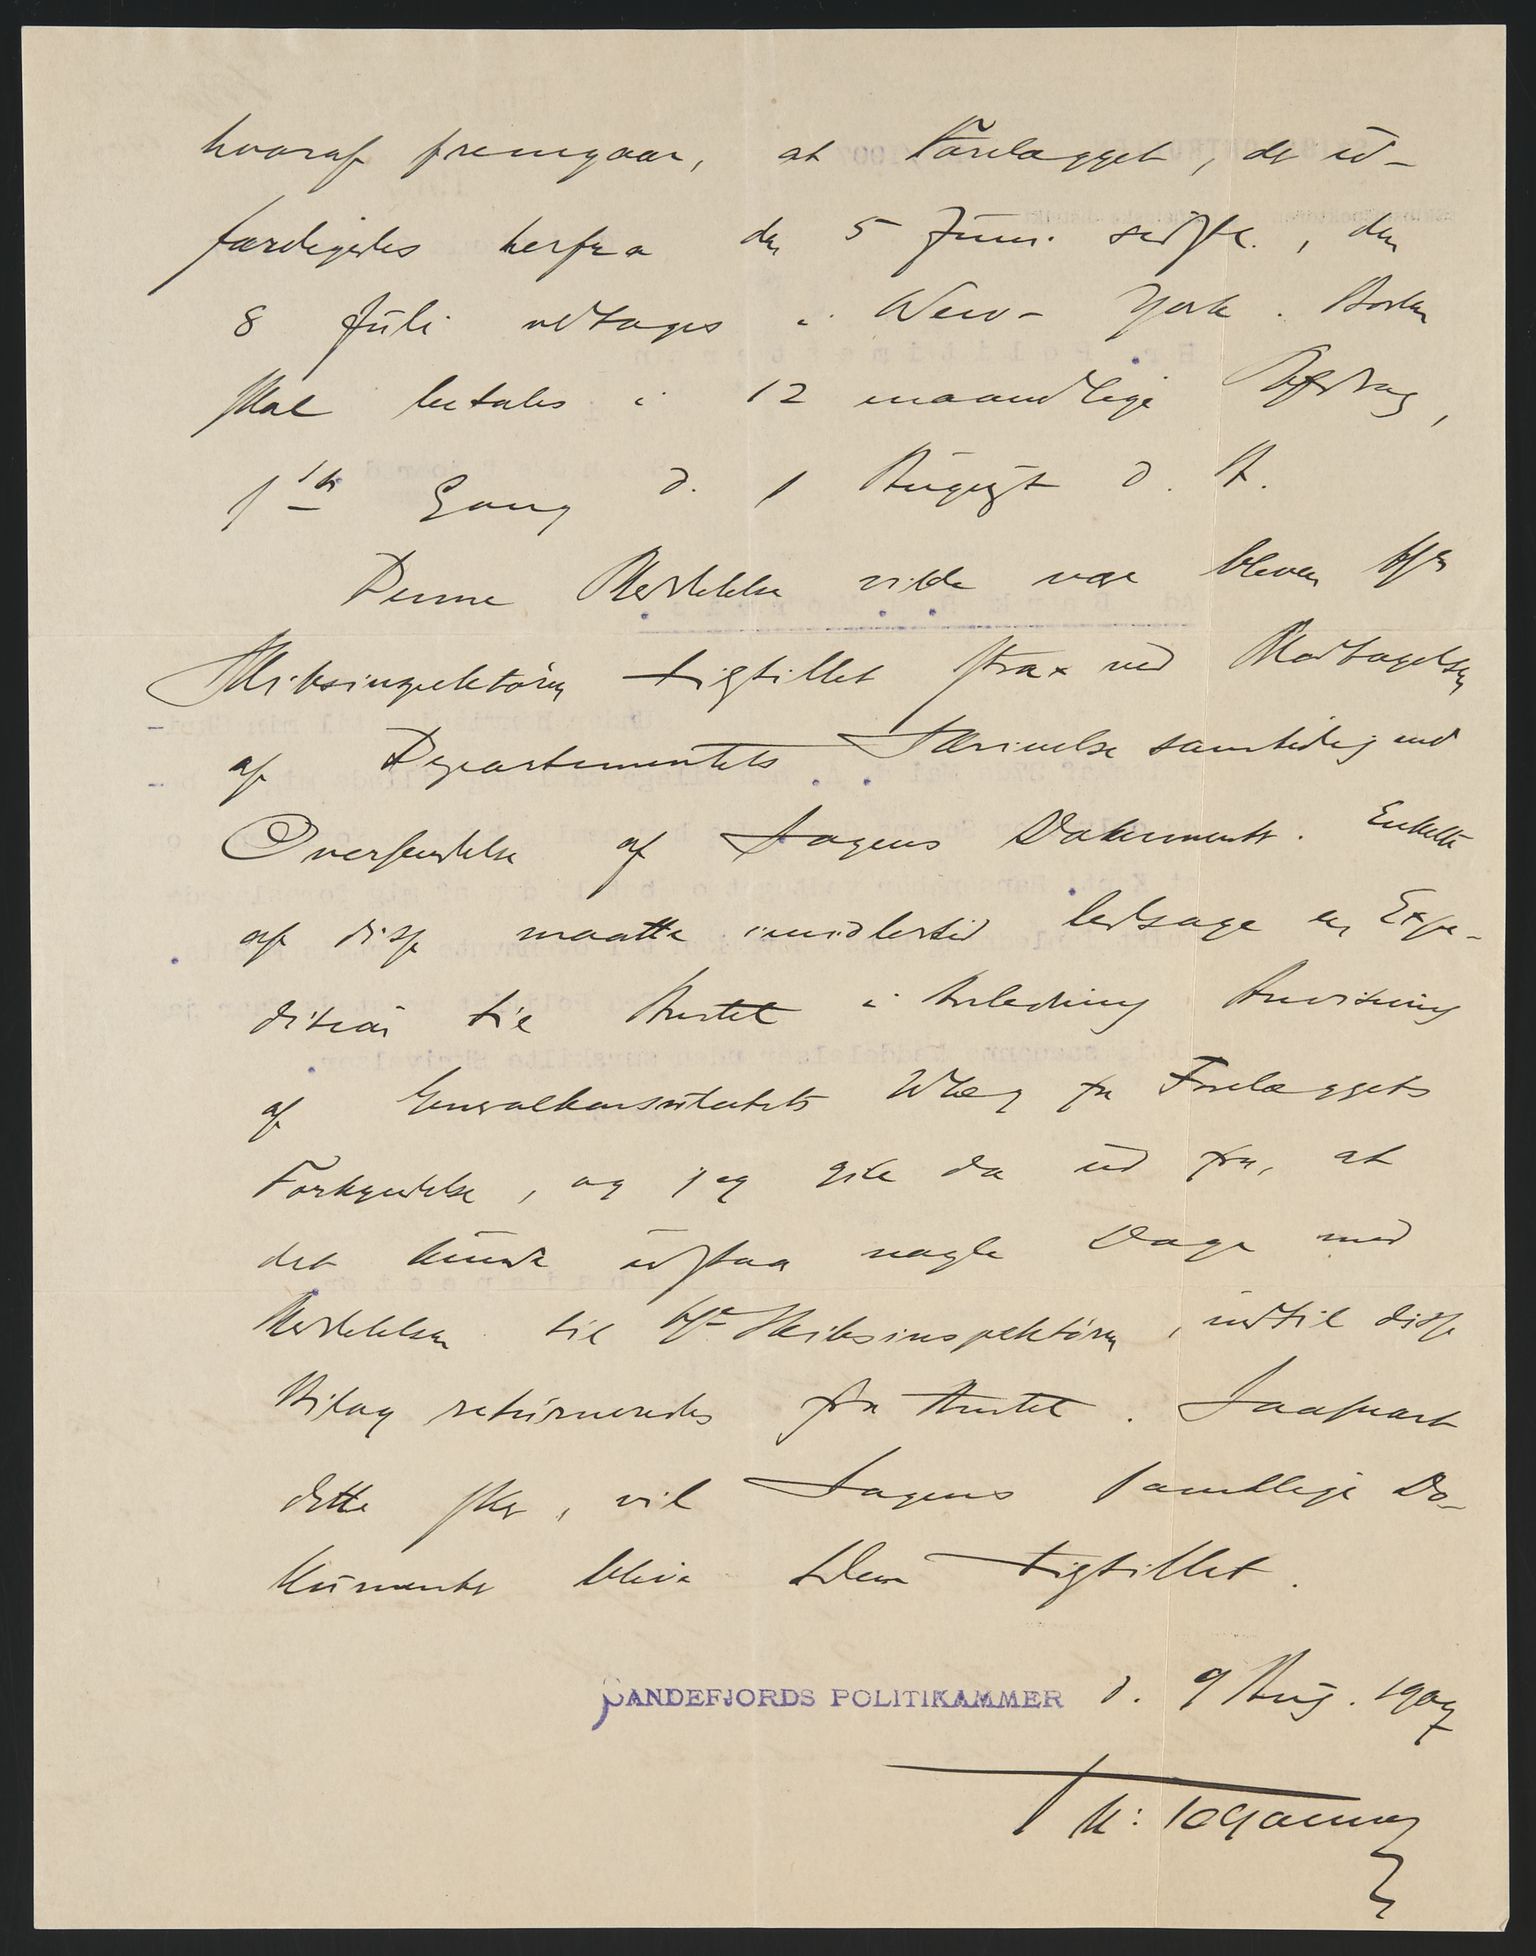 hvoraf fremgaar, at Forelægget, der ud-
færdigedes herfra den 5 Juni sidstl., den
8 Juli vedtages i New-York. Boden
skal betales i 12 maanedlige Afdrag,
1ste Gang d. 1 August d. A.
Denne Meddelelse vilde være bleven Hr
Skibsinspektøren tilstillet strax ved Modtagelsen
af Departementets Skrivelse samtidig med
Oversendelse af Sagens Dokumenter. Enkelte
af disse maatte imidlertid ledsage en Expe-
dition til Amtet i Anledning Anvisning
af Generalkonsulatets Udlæg for Forelæggets
Forkyndelse, og jeg gik da ud fra, at
det kunde udstaa nogle Dage med
Meddelelsen til Hr Skibsinspektøren, indtil disse
Bilag returneredes fra Amtet. Saasnart
dette sker, vil Sagens samtlige Do-
kumenter blive Dem tilstillet.
SANDEFJORDS POLITIKAMMER d. 9 Aug. 1907